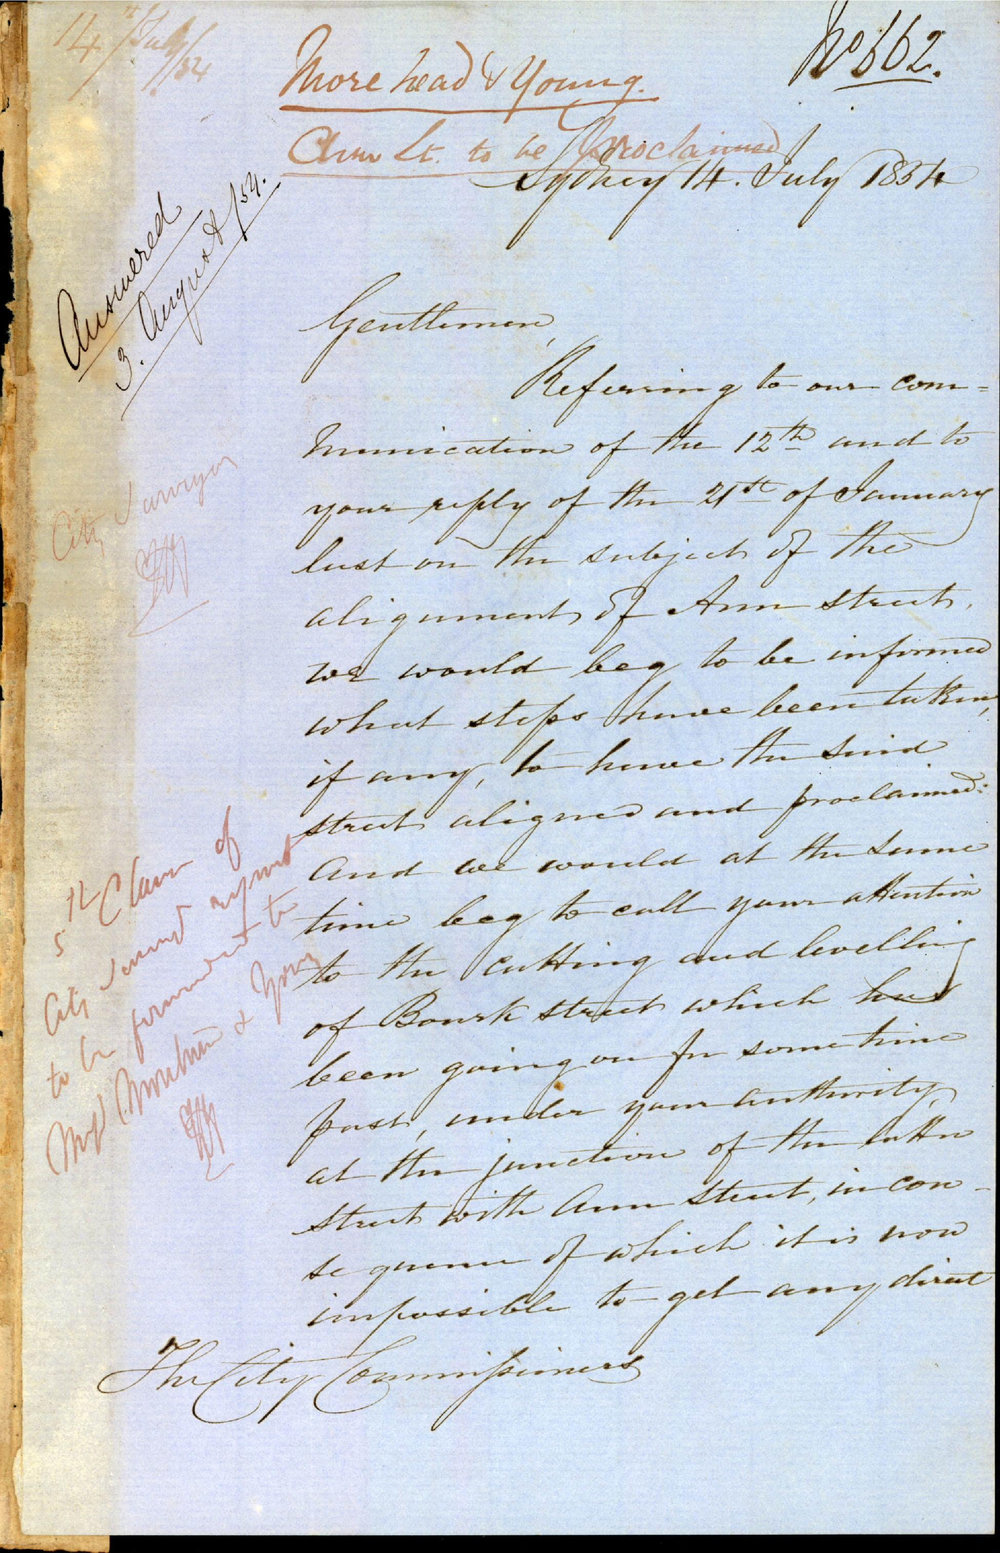 14th July/54
No 662.
More head & Young.
Ann St. to be Proclaimed
Sydney 14. July 1854
Answered
3. August /54.
Gentlemen,
Referring to our com=
munication of the 12th and to
your reply of the 21st of January
last on the subject of the
alignment of Ann Street,
we would beg to be informed
what steps have been taken,
if any, to have the said
street aligned and proclaimed:
And we would at the same
time beg to call your attention
to the cutting and levelling
of Bourk Street which has
been going on for some time
past, under your authority,
at the junction of the latter
street with Ann Street, in con-
sequence of which it is now
impossible to get any direct
The City Commissioners
City Surveyor
5th Clause of
City Surveyors report
to be forwarded to
Messrs Morehead & Young